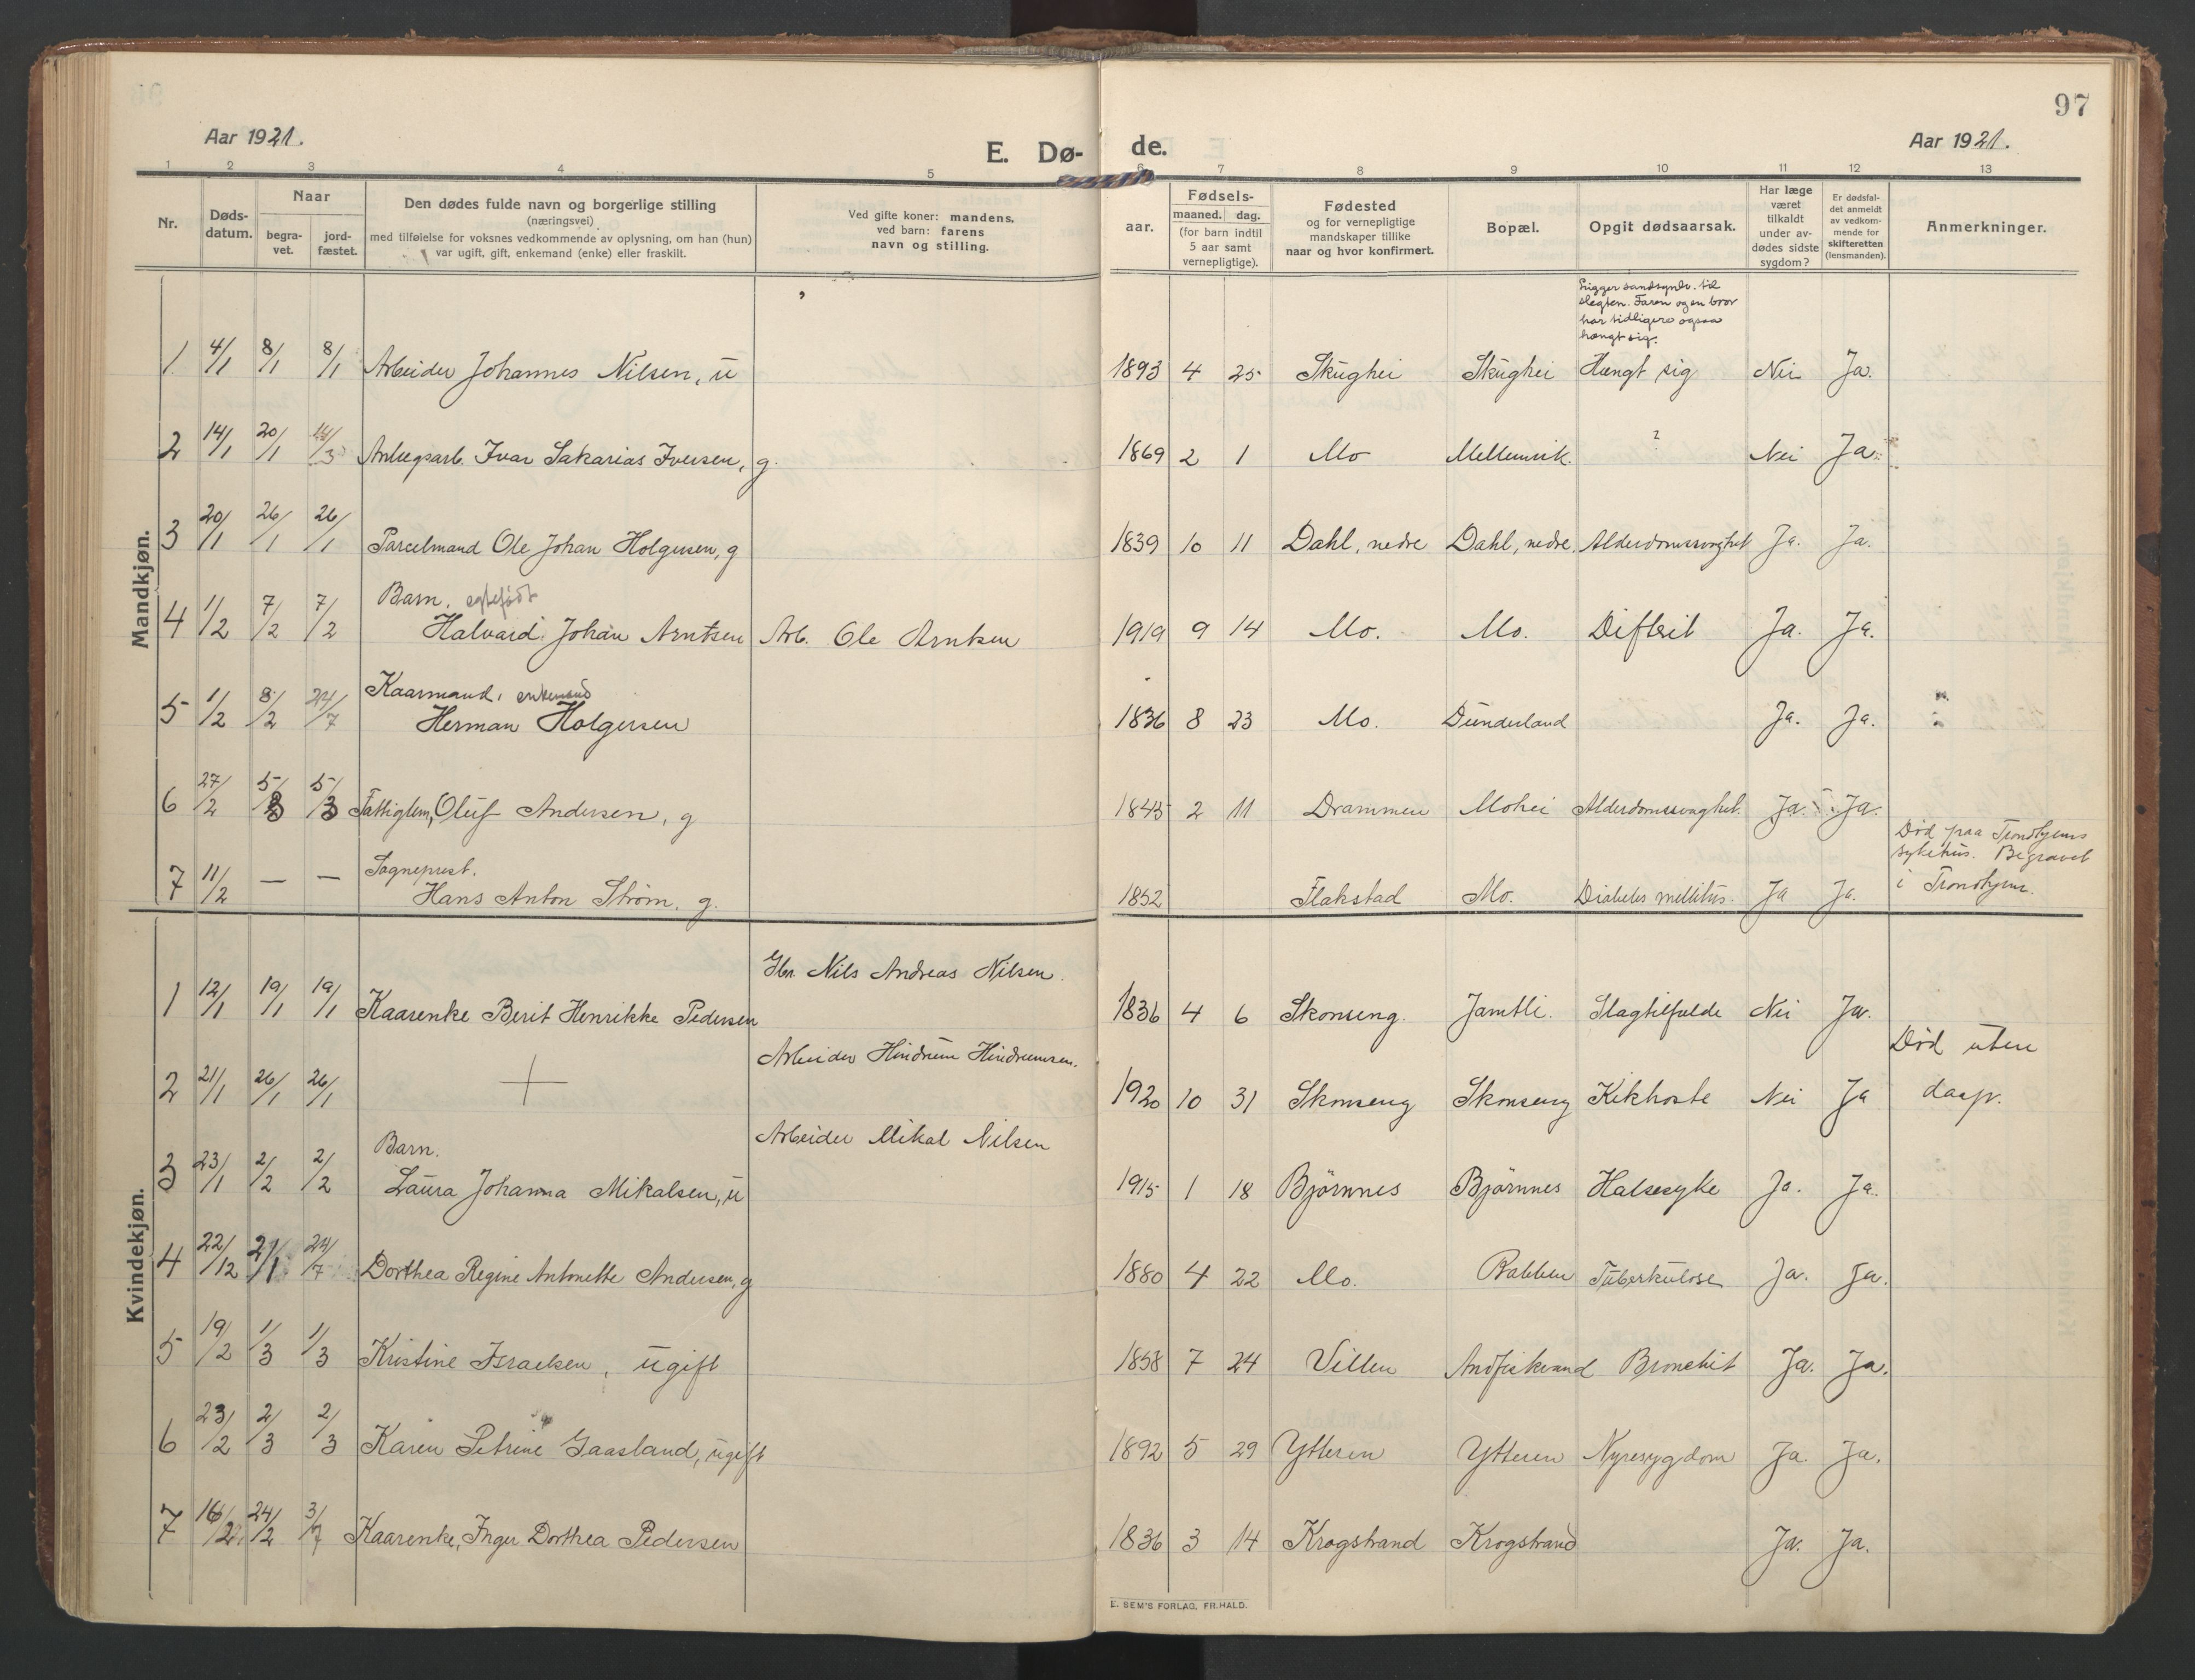 97
Aar 1921.
E. Dø- de.
Aar 1921.
1 2 3 4 5 6 7 8 9 10 11 12 13
Nr.
Døds-
datum.
Naar
begra-
vet.
jord-
fæstet.
Den dødes fulde navn og borgerlige stilling
(næringsvei)
med tilføielse for voksnes vedkommende av oplysning, om han (hun)
var ugift, gift, enkemand (enke) eller fraskilt.
Ved gifte koner: mandens.
ved barn: farens
navn og stilling.
Fødsels-
aar.
maaned. dag.
(for barn indtil
5 aar samt
vernepligtige).
Fødested
og for vernepligtige
mandskaper tillike
naar og hvor konfirmert.
Bopæl.
Opgit dødsaarsak.
Har læge
været
tilkaldt
under av-
dødes sidste
sygdom?
Er dødsfal-
det anmeldt
av vedkom-
mende for
skifteretten
(lensmanden).
Anmerkninger.
Mandkjøn.
Ligger sandsynlv. til
slegten. Faren og en bror
har tidligere ogsaa
hængt sig.
1 4/1 8/1 8/1 Arbeider Johannes Nilsen, u 1893 4 25 Skughei Skughei Hængt sig Nei Ja.
2 14/1 20/1 Anlegsarb. Ivar Sakarias Iversen, g. 1869 2 1 Mo Mellemvik. ? Nei Ja.
3 20/1 26/1 26/1 Parcelmand Ole Johan Holgersen, g 1839 10 11 Dahl, nedre Dahl, nedre. Alderdomssvaghet Ja. Ja.
Barn. egtefødt
4 1/2 7/2 7/2 Halvard Johan Arntsen Arb. Ole Arntsen 1919 9 14 Mo. Mo. Difterit Ja. Ja.
Kaarmand, enkemand
5 1/2 8/2 24/7 Herman Holgersen 1836 8 23 Mo. Dunderland Ja. Ja.
6 27/2 5/3 5/3 Fattiglem, Oluf Andersen, g 1843 2 11 Drammen Mohei Alderdomssvaghet. Ja. Ja.
Sogneprest.
7 11/2 — — Hans Anton Strøm, g. 1852 Flakstad Mo. Diabetes mellitus. Ja Ja.
Død paa Trondhjems
sykehus. Begravet
i Trondhjem.
Kvindekjøn.
Gbr. Nils Andreas Nilsen.
1 12/1 19/1 19/1 Kaarenke Berit Henrikke Pedersen 1836 4 6 Skonseng. Jamtli. Slagtilfælde Nei Ja.
Arbeider Hindrum Hindrumsen.
2 21/1 26/1 26/1 + 1920 10 31 Skonseng Skonseng Kikhoste Nei Ja
Død uten
daap.
Barn.
Arbeider Mikal Nilsen
3 23/1 2/2 2/2 Laura Johanna Mikalsen, u 1915 1 18 Bjørnnes Bjørnnes Halsesyke Ja. Ja.
4 22/12 2/1 24/7 Dorthea Regine Antonette Andersen, g 1880 4 22 Mo. Bakken Tuberkulose Ja. Ja.
5 19/2 1/3 1/3 Kristine Israelsen, ugift 1858 7 24 Villen Andfiskvand Bronchit Ja. Ja.
6 23/2 2/3 2/3 Karen Petrine Gaasland, ugift 1892 5 29 Ytteren Ytteren Nyresygdom Ja. Ja.
7 16/2 24/2 3/7 Kaarenke, Inger Dorthea Pedersen 1836 3 14 Krogstrand Krogstrand Ja. Ja.
E. SEM'S FORLAG, FR.HALD.